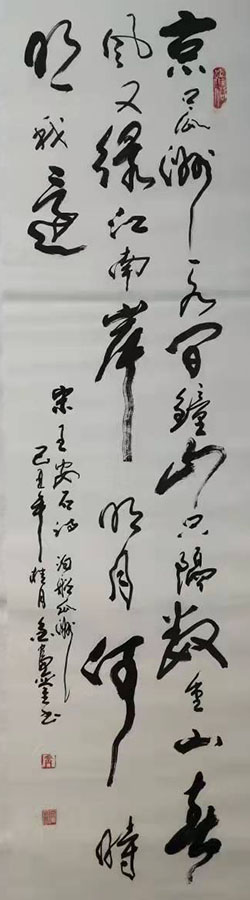 京口瓜洲一水間鐘山只隔数重山春
風又緑江南岸明月何時
照我還
宋王安石詩泊船瓜洲
己丑年桂月書